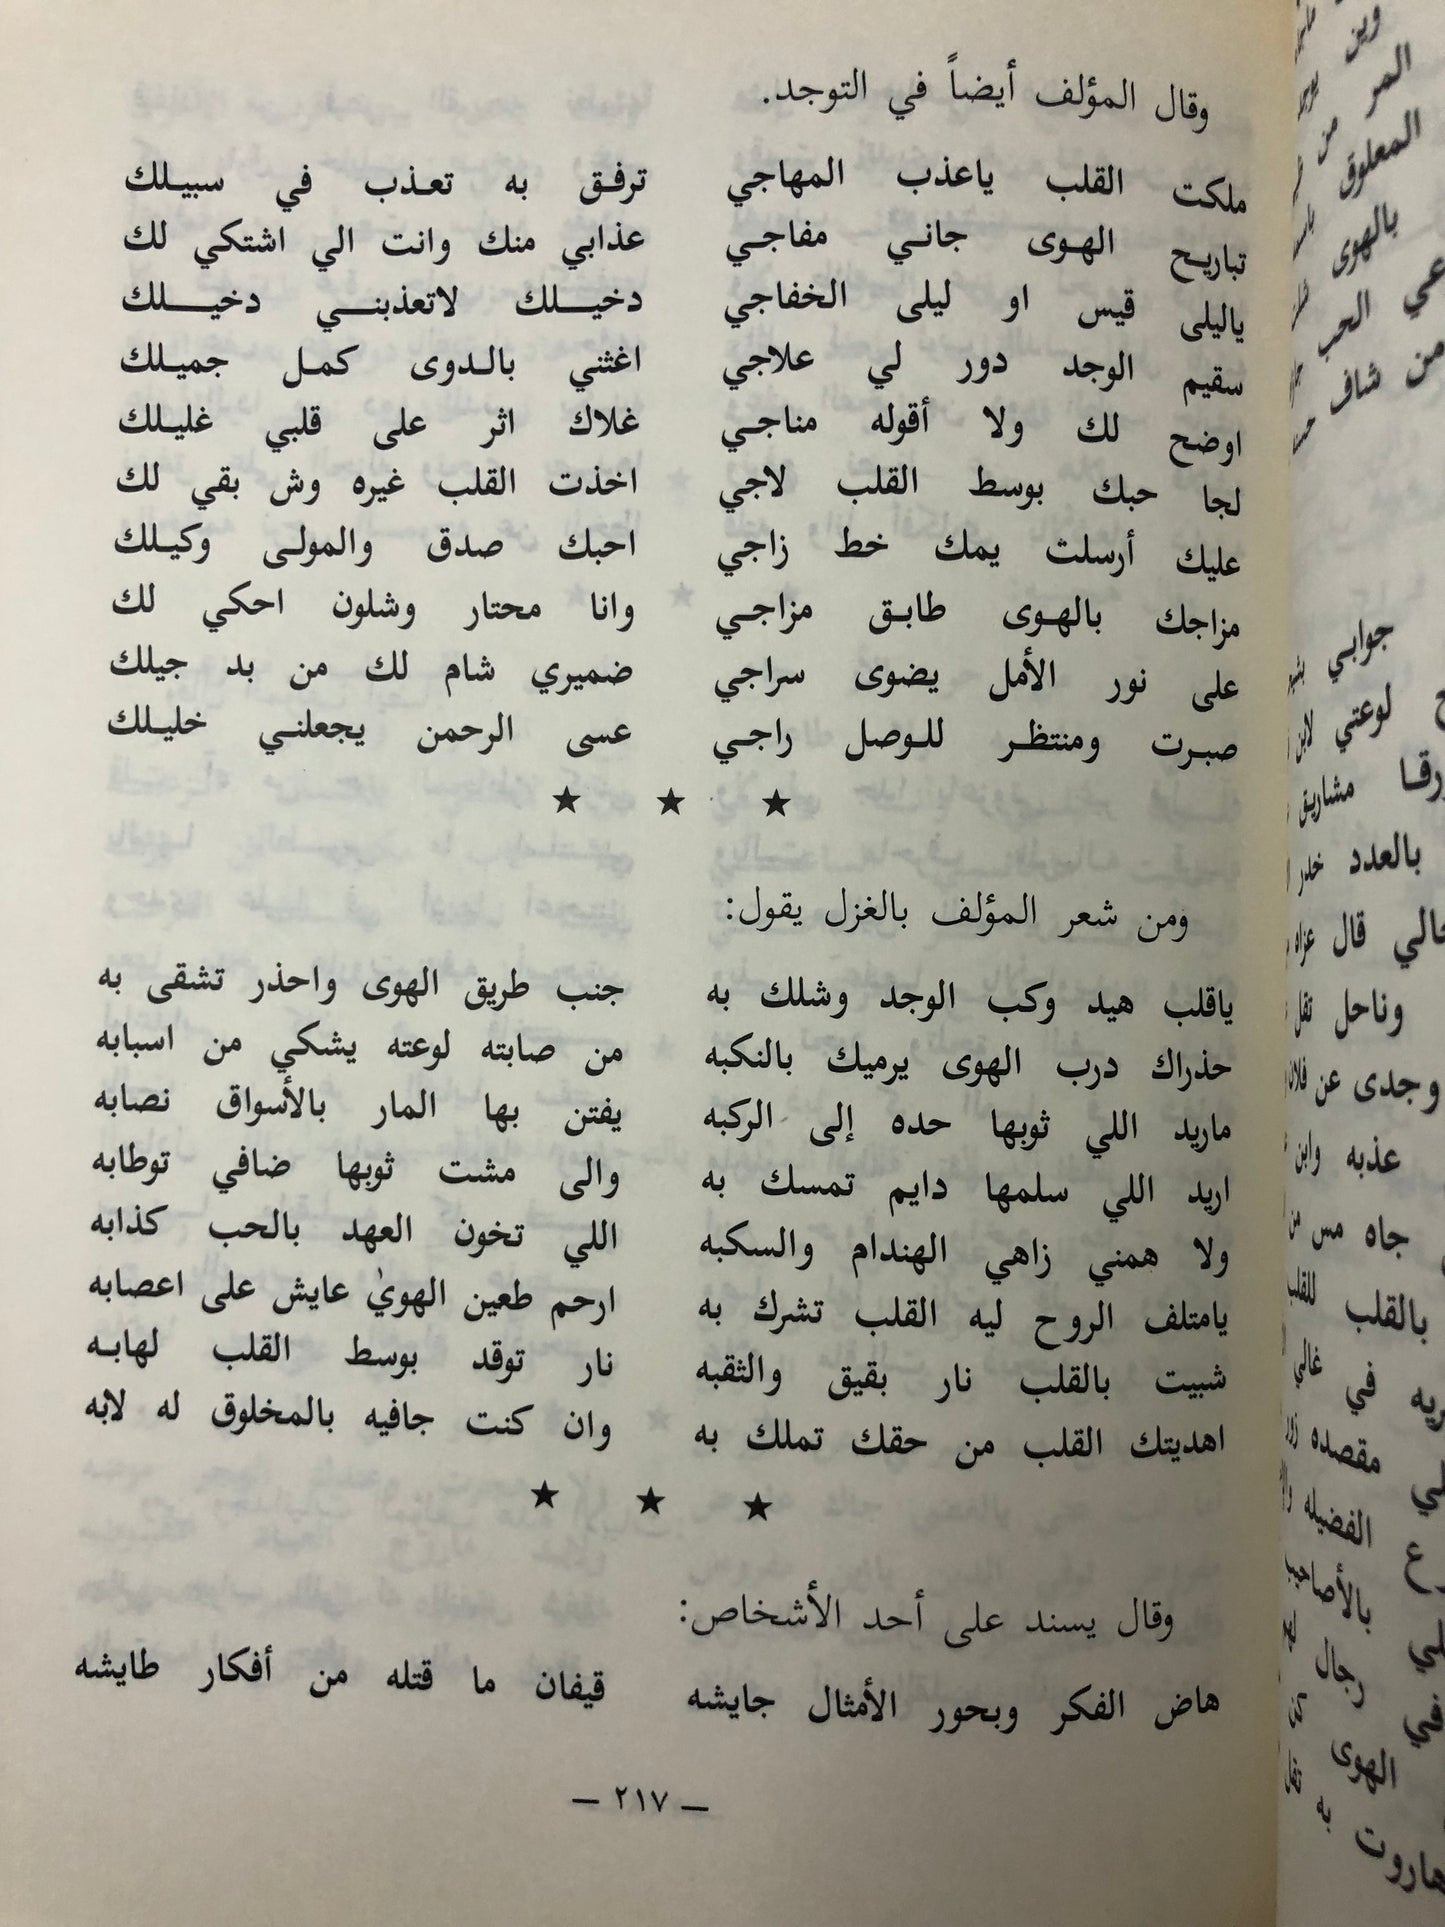 وقال المؤلف أيضاً في التوجد.
ملكت القلب ياعذب المهاجي ترفـق به تعـذب في سبيـلك
تباريـح الهـوى جانـي مفاجـي عذابي منك وانت الي اشتكي لك
ياليلى قيس او ليلى الخفاجي دخيـــلك لاتعذبنـــي دخيـــلك
سقيم الوجد دور لي علاجي اغثني بالـدوى كمـل جميـلك
اوضح لك ولا أقوله مناجـي غلاك اثر على قلبي غليـلك
لجا حبك بوسط القلب لاجي اخذت القلب غيره وش بقي لك
عليك أرسلت يمك خط زاجي احبك صدق والمولـى وكيـلك
مزاجك بالهـوى طابـق مزاجـي وانا محتار وشلون احكي لك
على نور الأمل يضوى سراجي ضميري شام لك من بد جيلك
صبـرت ومنتظـر للـوصل راجـي عسى الرحمن يجعلنـي خليـلك
★ ★ ★
ومن شعر المؤلف بالغزل يقول:
ياقلب هيد وكب الوجد وشلك به جنب طريق الهوى واحذر تشقى به
حذراك درب الهوى يرميك بالنكبه من صابته لوعته يشكي من اسبابه
ماريد اللي ثوبها حده إلى الركبه يفتن بها المار بالأسواق نصابه
اريد اللي سلمها دايم تمسك به والى مشت ثوبها ضافي توطابه
ولا همني زاهي الهندام والسكبه اللي تخون العهد بالحب كذابه
يامتلف الروح ليه القلب تشرك به ارحم طعين الهوىٰ عايش على اعصابه
شبيت بالقلب نار بقيق والثقبه نار توقد بوسط القلب لهابـه
اهديتك القلب من حقك تملك به وان كنت جافيه بالمخلوق له لابه
★ ★ ★
وقال يسند على أحد الأشخاص:
هاض الفكر وبحور الأمثال جايشه قيفان ما قتله من أفكار طايشه
— ٢١٧ —